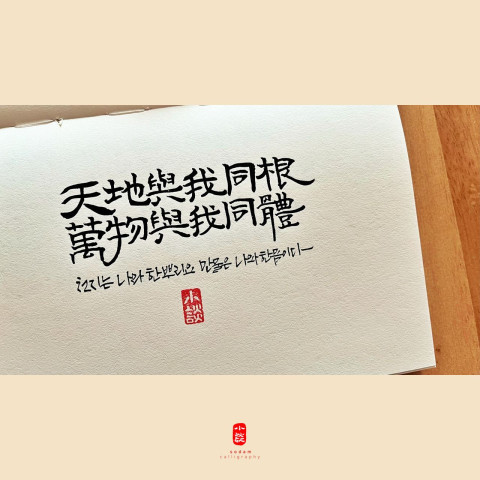 天地與我同根
萬物與我同體
천지는 나와 한뿌리요 만물은 나와 한몸이다
小談
小談
sodam
calligraphy